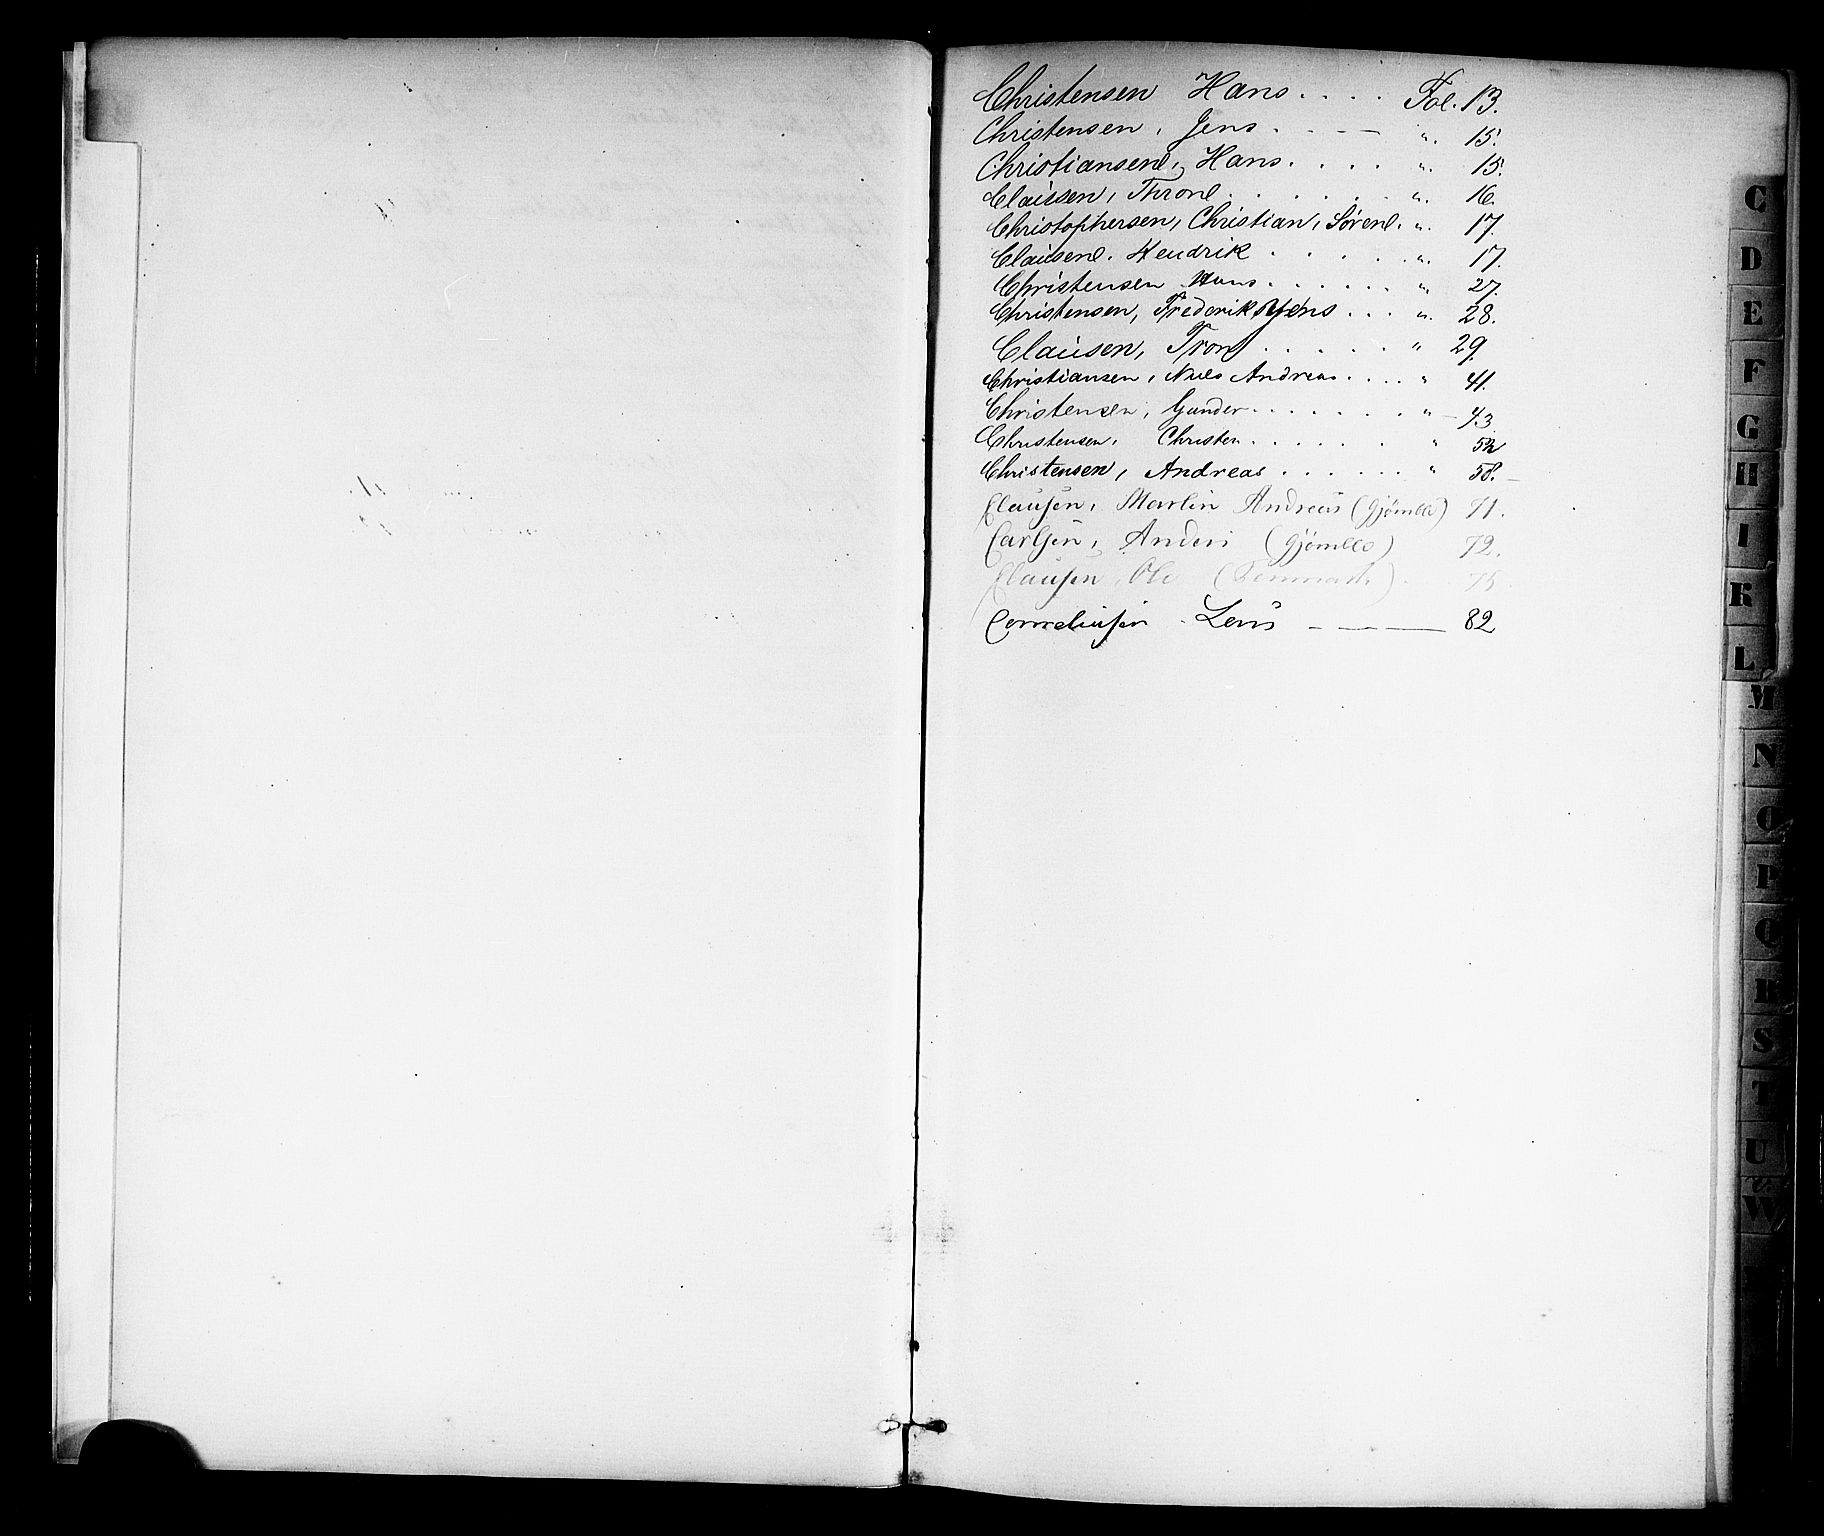 Christensen Hans .... Fol. 13.
Christensen, Jens . . . — ". 15.
Christiansen, Hans. . . . ". 15.
Claussen, Throne . . . . . . ". 16.
Christophersen, Christian, Sørene. ". 17.
Clausen. Hendrik . . . . . ". 17.
Christensen Hans . . . . . . ". 27.
Christensen, Frederik Jens . . . ". 28.
Clausen, Tron . . . . . " 29.
Christiansen, Niels Andreas . . . . " 41.
Christensen, Gunder . . . . . . . " 43
Christensen, Christen . . . . . . " 52
Christensen, Andreas . . . . . . " 58.
Clausen, Martin Andreas (Gjømle) 71.
Carlsen, Anders (Gjømle) 72.
Clausen, Ole 75.
Corneliusen 82
C
D
E
F
G
H
I
K
L
M
N
O
P
Q
R
S
T
U
V
W